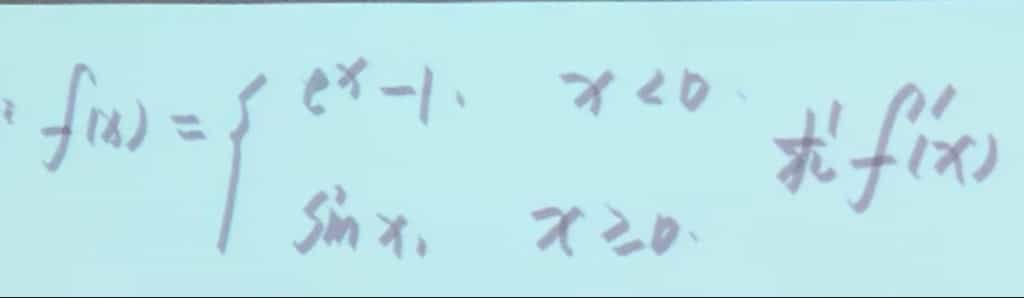 f(x) = { e^x - 1, x < 0
sin x, x ≥ 0. 求 f'(x)